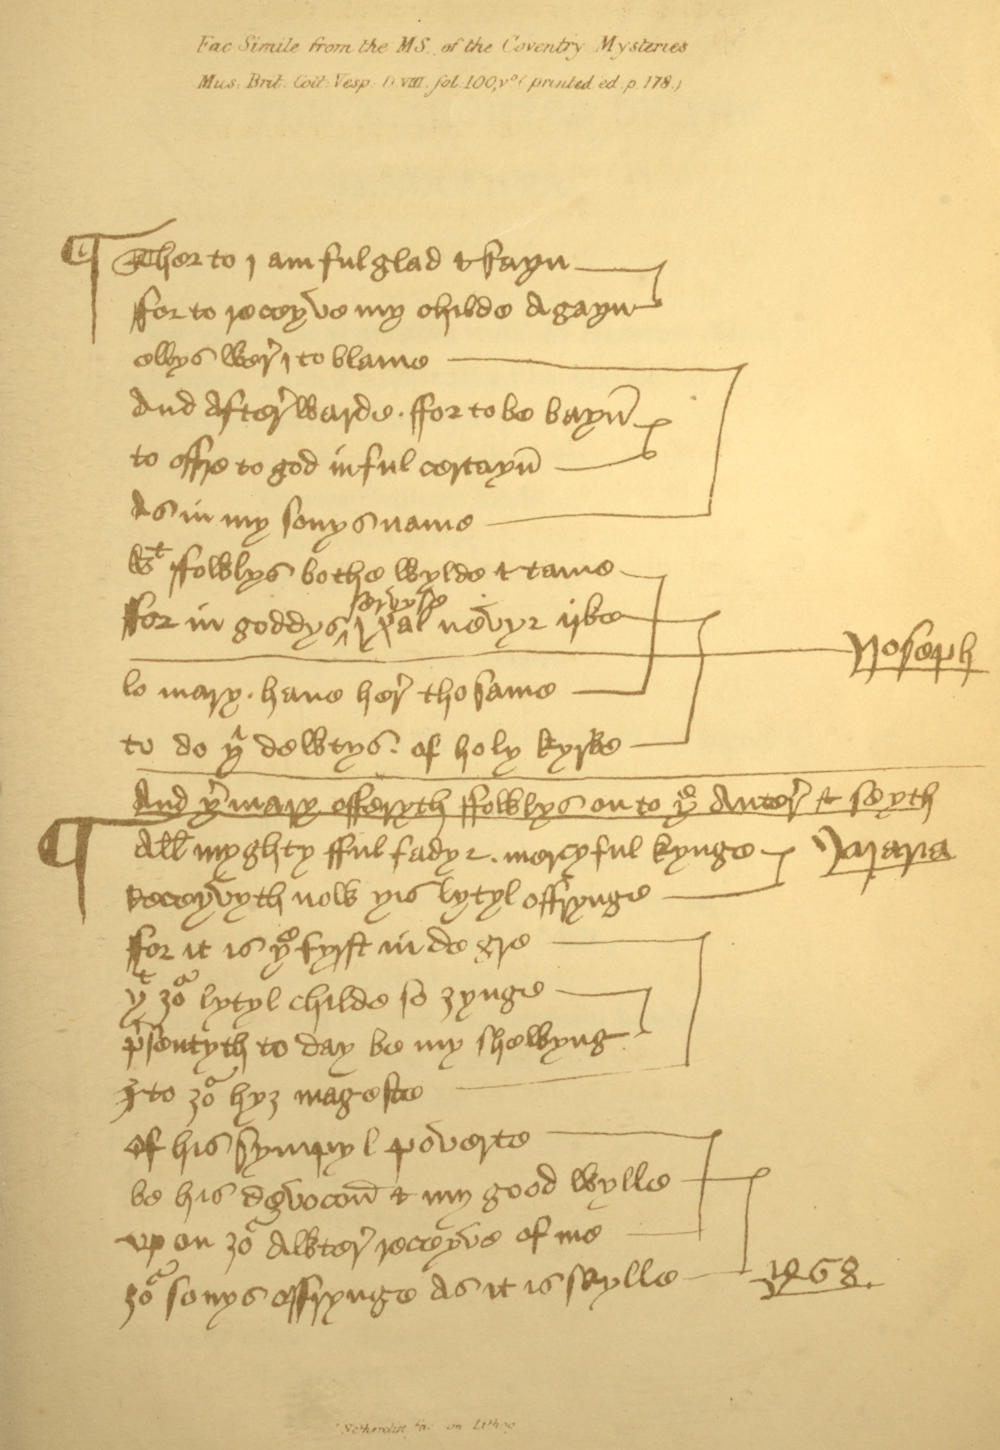 Fac Simile from the MS. of the Coventry Mysteries
Mus. Brit. Cott. Vesp. D. VIII. fol. 100, vº (printed ed. p. 178.)
Ther to I am ful glad & fayn
ffor to receyve my childe Agayn
ellys wer I to blame
And Afterwarde . ffor to be bayn
to offre to god in ful certayn
As in my sonys name
wt ffowlys bothe wylde & tame
servyse
ffor in goddys I xal nevyr irke
Joseph
lo mary . have her tho same
to do þi dewtys . of holy kyrke
And þer mary offeryth ffowlys on to þe Auter & seyth
All myghty fful fadyr . mercyful kynge
Maria
Receyvyth now þis lytyl offrynge
ffor it is þe fyrst in degre
þt ȝour lytyl childe so ȝynge
presentyth to day be my shewyng
to ȝour hyȝ mageste
Of his sympyl poverte
be his devocon & my good wylle
up on ȝour Awter receyve of me
ȝour sonys offrynge As it is skylle
1468.